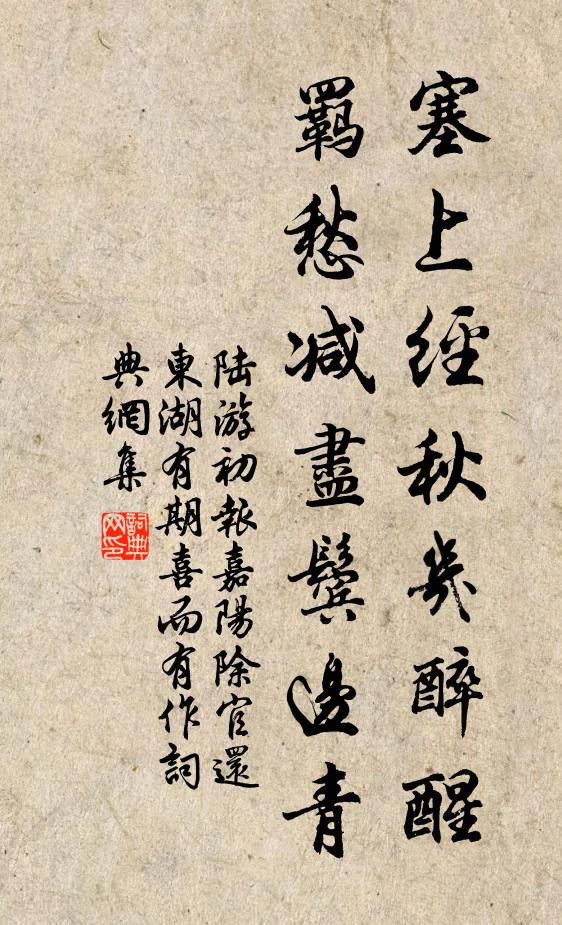 塞上經秋幾醉醒
羇愁减盡鬢邊青
陆游初報嘉陽除官還
東湖有期喜而有作詞
典網集
詞典网印